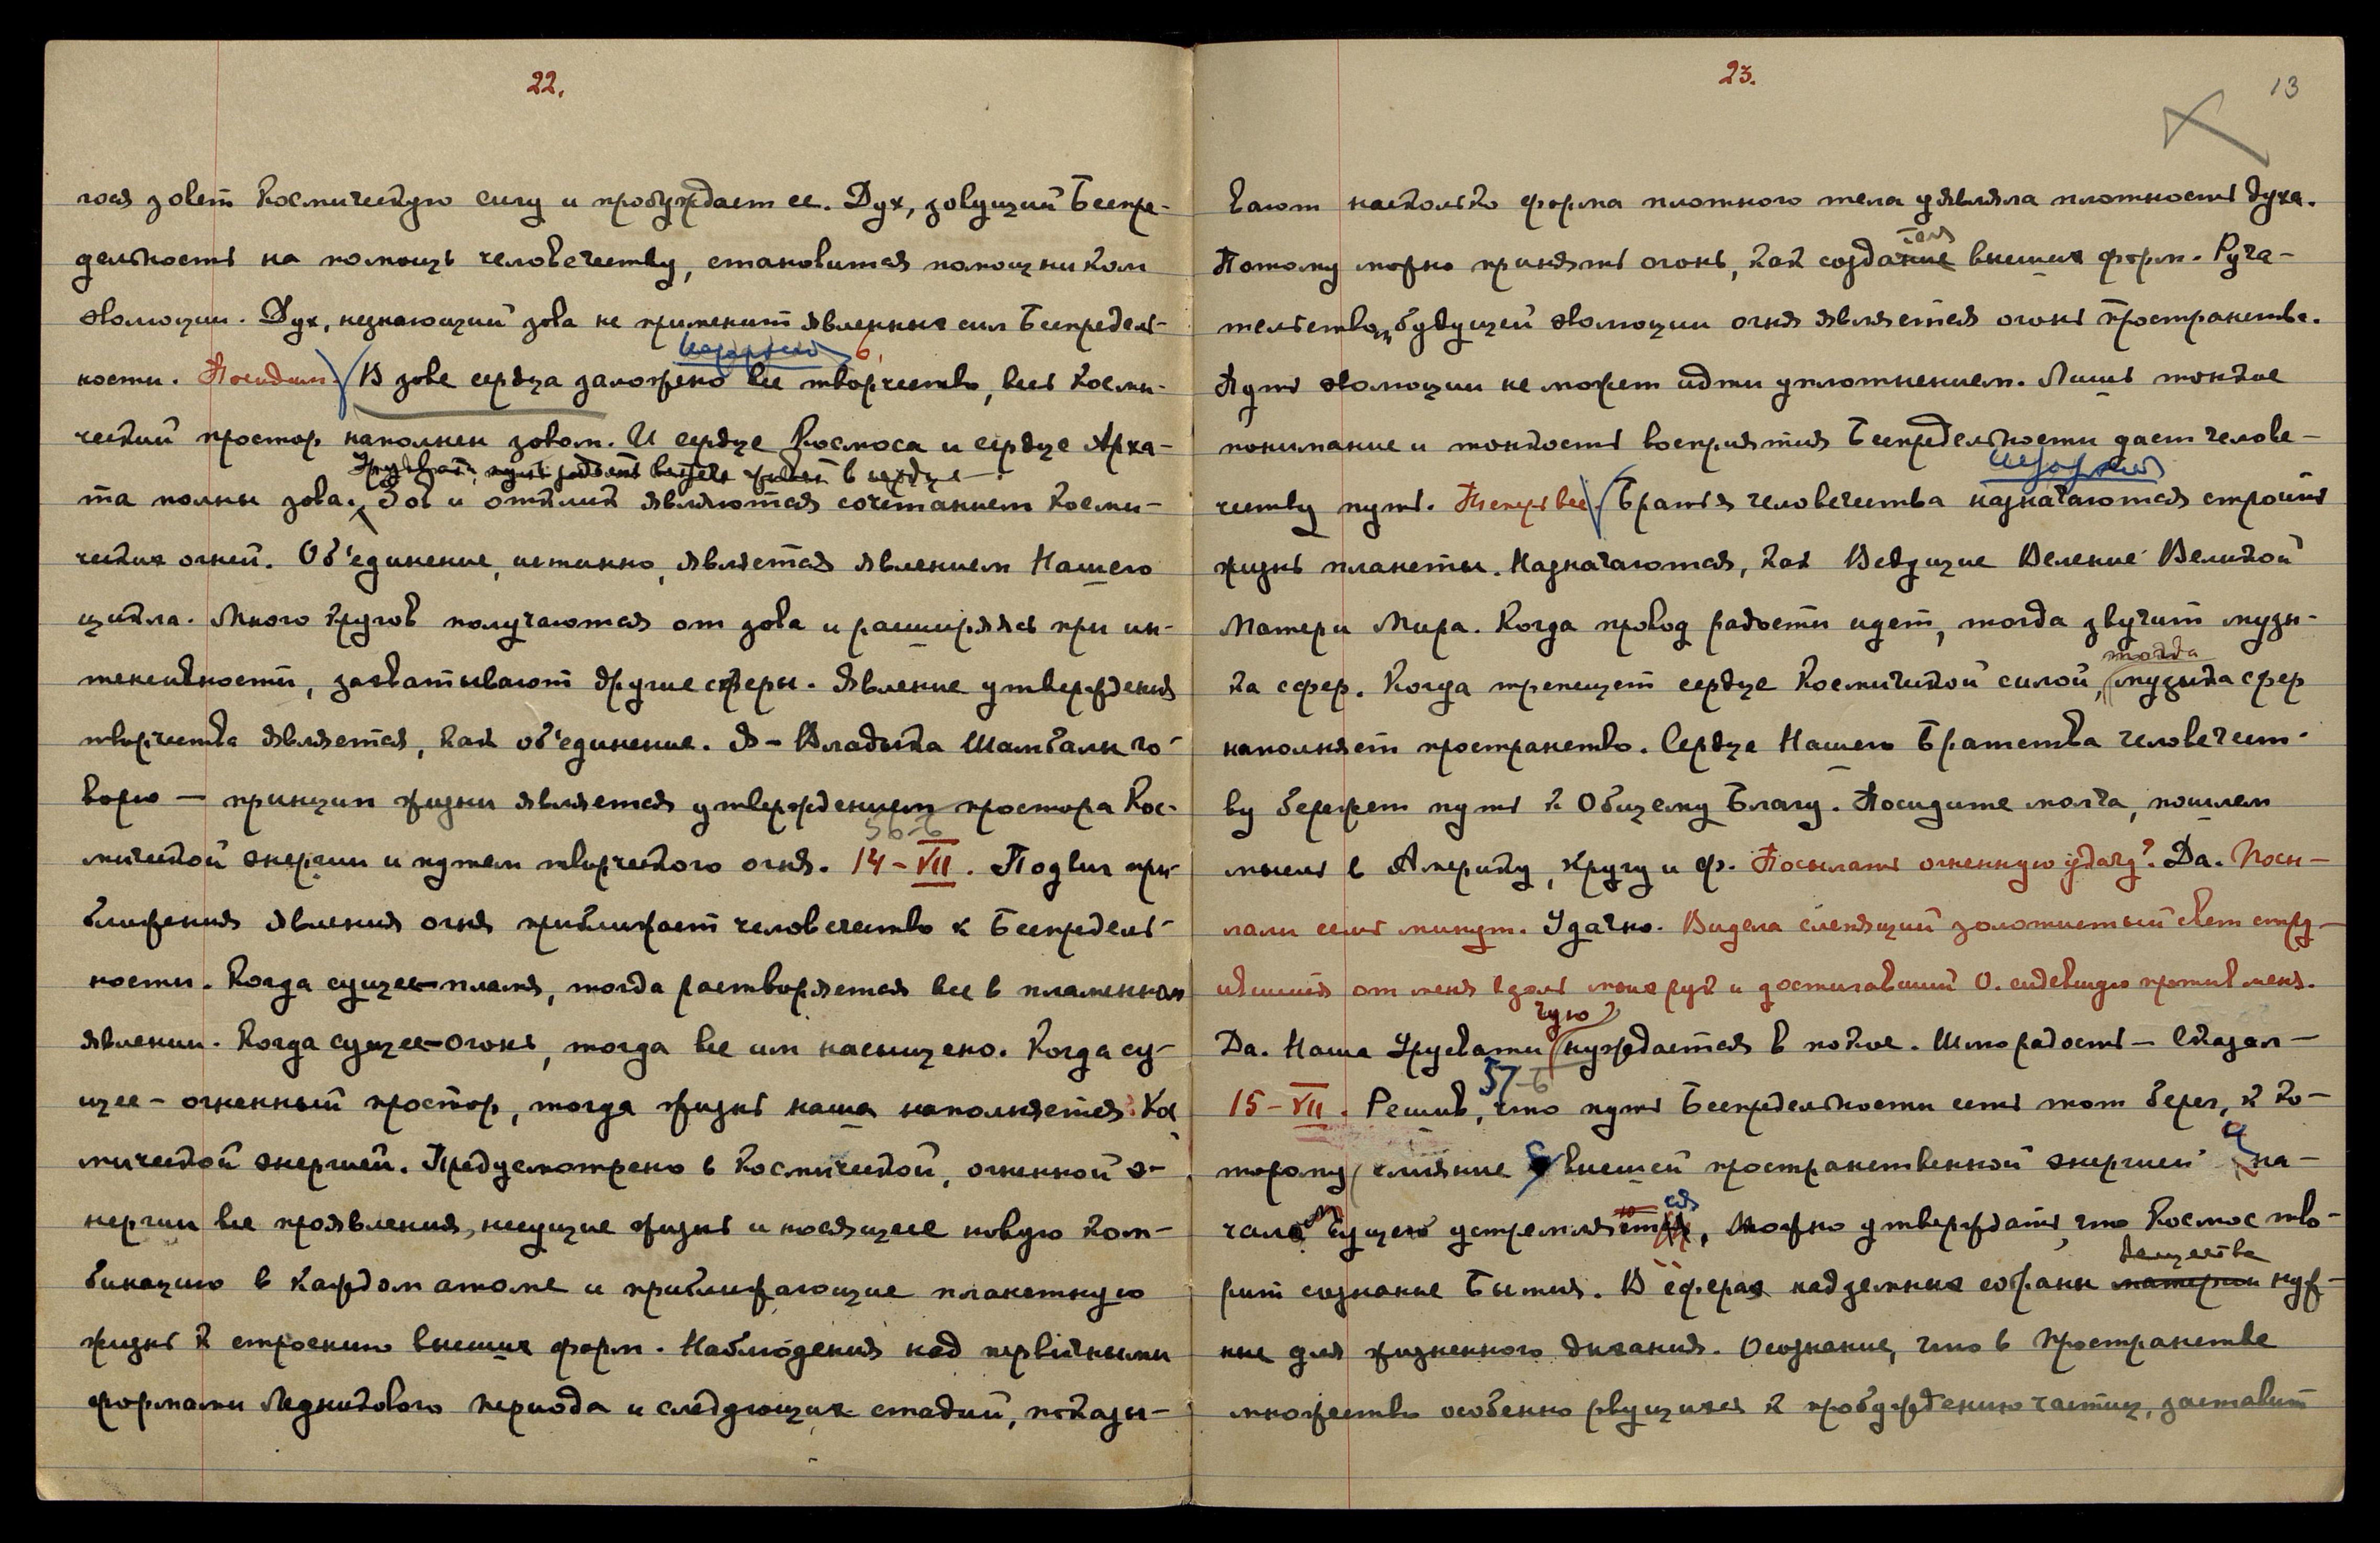 22.
гося зовет Космическую силу и пробуждает ее. Дух, зовущий Беспре-
дельность на помощь человечеству, становится помощником
эволюции. Дух, незнающий зова не применит явленных сил Беспредель-
ности. Посидим. В зове сердца заложено все творчество, весь Косми-
ческий простор наполнен зовом. И сердце Космоса и сердце Арха-
в сердце
та полны зова. Зов и отклик являются сочетанием Косми-
ческих огней. Об'единение, истинно, является явлением Нашего
цикла. Много кругов получаются от зова и расширяясь при ин-
тенсивности, захватывают другие сферы. Явление утверждения
творчества является, как об'единение. Я – Владыка Шамбалы го-
ворю — принцип жизни является утверждением простора Кос-
56-Б
мической энергии и путем творческого огня. 14-VII. Подвиг при-
ближения явления огня приближает человечество к Беспредель-
ности. Когда сущее–пламя, тогда растворяется все в пламенном
явлении. Когда сущее–огонь, тогда все им насыщено. Когда су-
щее – огненный простор, тогда жизнь наша наполняется Кос
мической энергией. Предусмотрено в Космической, огненной э-
нергии все проявления, несущие жизнь и носящие новую ком-
бинацию в каждом атоме и приближающие планетную
жизнь к строению высших форм. Наблюдения над первичными
формами Ледникового периода и следующих стадий, показы-
23.
13
вают насколько форма плотного тела уявляла плотность духа.
теля
Потому можно принять огонь, как создание высших форм. Руча-
тельство, будущей эволюции огня является огонь пространства.
Путь эволюции не может идти уплотнением. Лишь тонкое
понимание и тонкость восприятия Беспредельности дает челове-
честву путь. Теперь все. Братья человечества назначаются строить
жизнь планеты. Назначаются, как Ведущие Веление Великой
Матери Мира. Когда провод радости идет, тогда звучит музы-
тогда
ка сфер. Когда трепещет сердце Космической силой, музыка сфер
наполняет пространство. Сердце Нашего Братства человечест-
ву бережет путь к Общему Благу. Посидите молча, пошлем
мысль в Америку, кругу и ф. Посылать огненную удачу? Да. Посы-
лали семь минут. Удачно. Видела слепящий золотистый свет стру-
ившийся от меня вдоль моих рук и достигавший О. сидевшую против меня.
чую
Да. Наша Урусвати нуждается в покое. Шлю радость – Сказал –
57-Б
15-VII. Решив, что путь Беспредельности есть тот берег, к ко-
торому слияние с высшей пространственной энергией на-
ся
чало сущего устремляет, можно утверждать, что Космос тво-
вещества
рит сознание Бытия. В сферах надземных собраны материи нуж-
ные для жизненного дыхания. Осознание, что в Пространстве
множество особенно рвущихся к пробуждению частиц, заставит